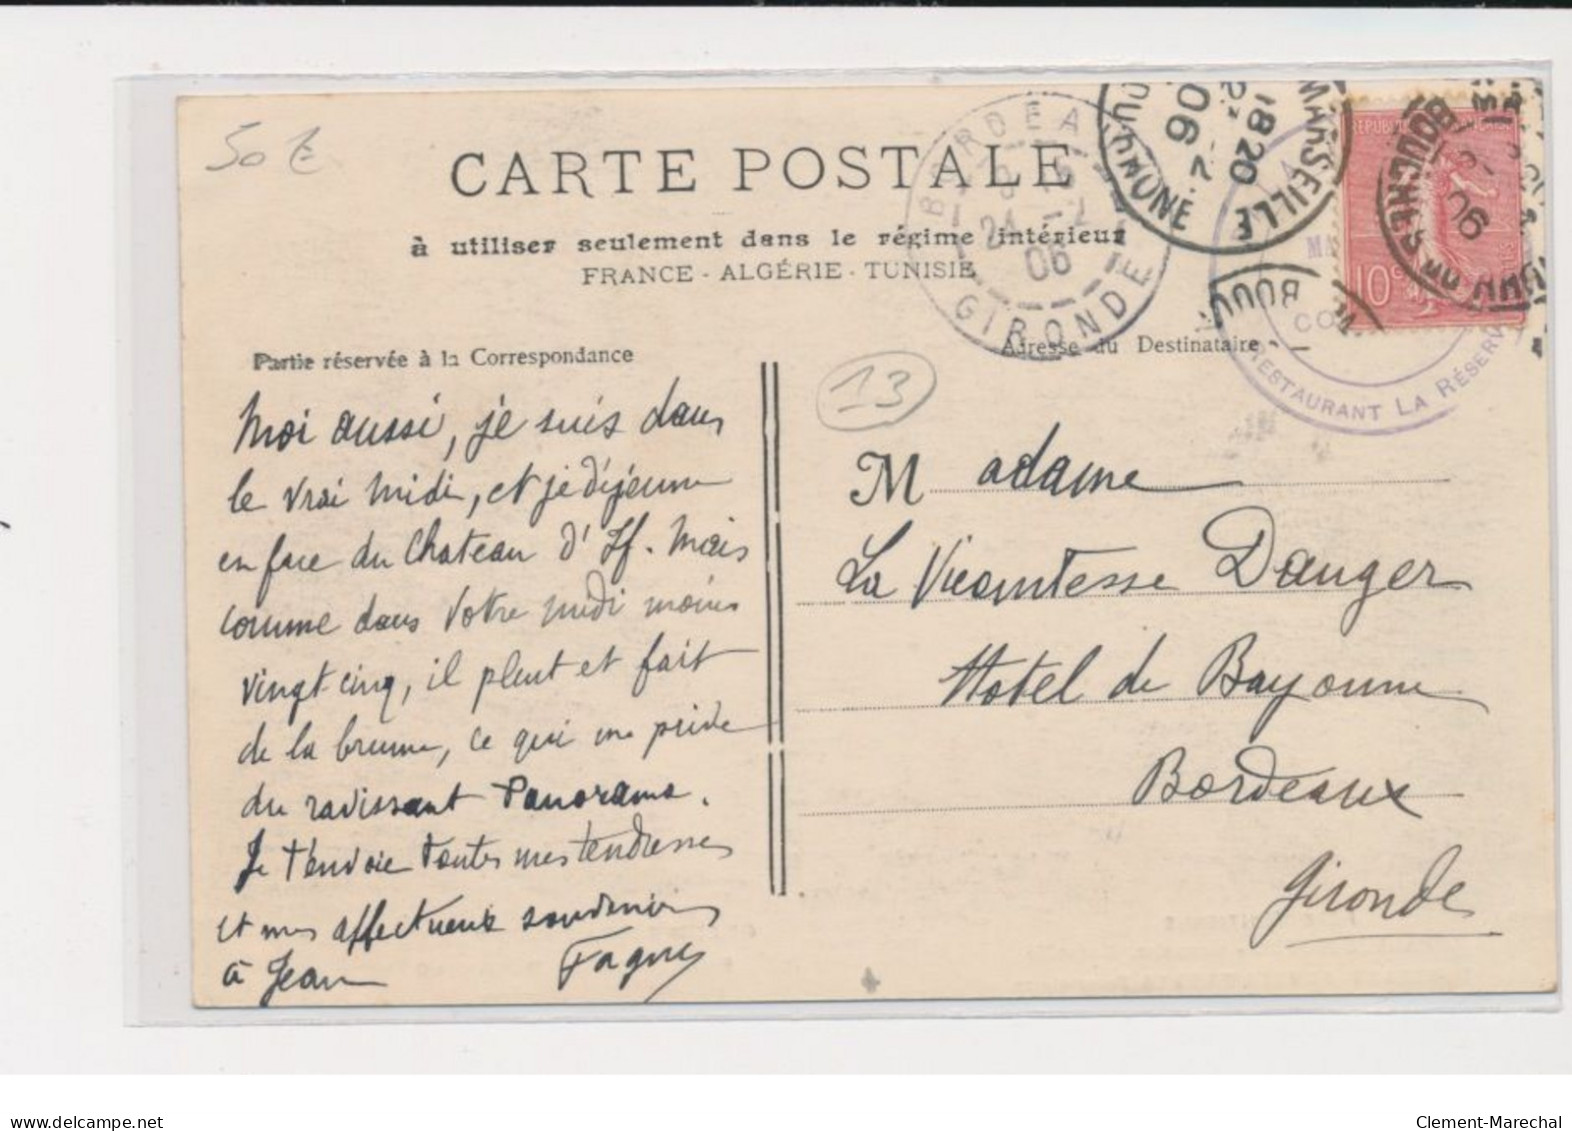 50 €
CARTE POSTALE
à utiliser seulement dans le régime intérieur
FRANCE - ALGÉRIE - TUNISIE
BORDEA
24 -2
06
GIRONDE
MARSEILLE
1820
06
BOUC
RÉPUBLIQUE FRANÇAISE
10c
BOUCHES DU
06
RESTAURANT LA RÉSERVE
Partie réservée à la Correspondance
Adresse du Destinataire
13
Moi aussi, je suis dans
le vrai midi, et je déjeune
en face du Chateau d'If. Mais
comme dans votre midi moins
vingt cinq, il pleut et fait
de la brume, ce qui me prive
du ravissant Panorama.
Je t'envoie toutes mes tendresses
et mes affectueux souvenirs
à Jean
Madame
La Vicomtesse Dauger
Hotel de Bayonne
Bordeaux
Gironde
www.delcampe.net
Clement-Marechal